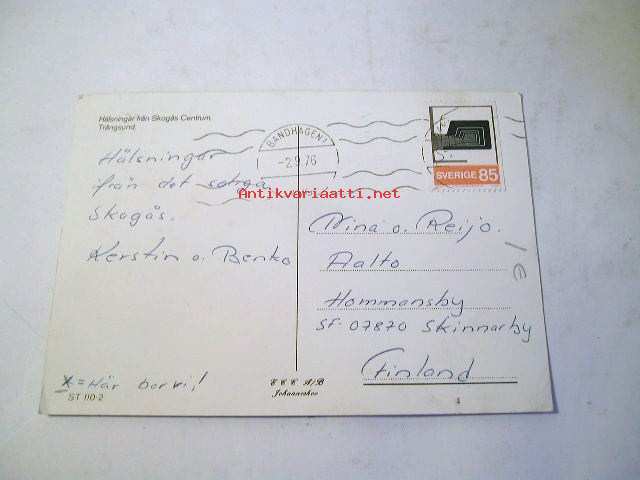 Hälsningar från Skogås Centrum
Trångsund
Hälsningar
från det soliga
Skogås.
Kerstin o. Benko
x = Här bor vi!
ST 110-2
BANDHAGEN 1
-2.9.76
SVERIGE 85
Antikvariaatti.net
Nina o. Reijo.
Aalto
Hommansby
SF-07870 Skinnarby
Finland
E C C A/B
Johanneshov